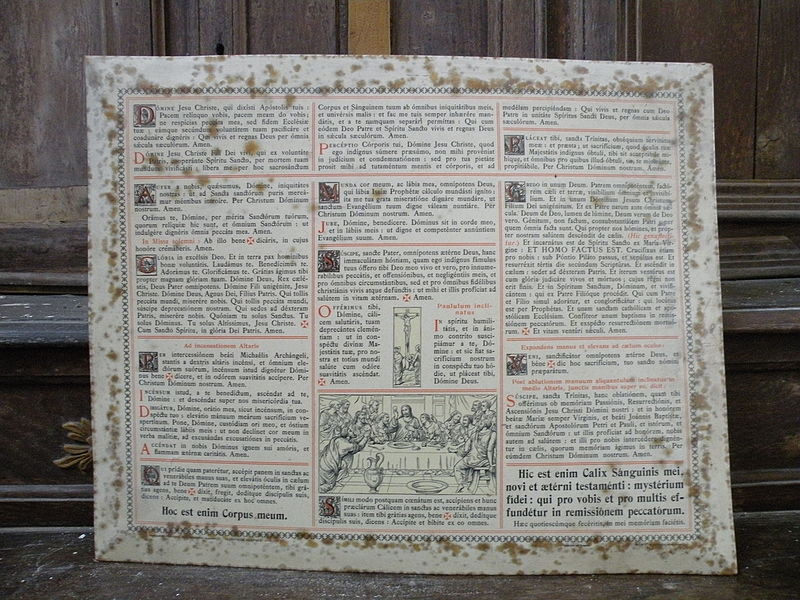 DOMINE Jesu Christe, qui dixisti Apóstolis tuis :
Pacem relínquo vobis, pacem meam do vobis;
ne respícias peccáta mea, sed fidem Ecclésiæ
tuæ : eámque secúndum voluntátem tuam pacificáre et
coadunáre dignéris : Qui vivis et regnas Deus per ómnia
sǽcula sæculórum. Amen.
DÓMINE Jesu Christe Fili Dei vivi, qui ex voluntáte
Patris, cooperánte Spíritu Sancto, per mortem tuam
mundum vivificásti : líbera me per hoc sacrosánctum
Corpus et Sánguinem tuum ab ómnibus iniquitátibus meis,
et univérsis malis : et fac me tuis semper inhærére man-
dátis, et a te numquam separári permíttas : Qui cum
eódem Deo Patre et Spíritu Sancto vivis et regnas Deus
in sǽcula sæculórum. Amen.
PERCÉPTIO Córporis tui, Dómine Jesu Christe, quod
ego indígnus súmere præsúmo, non mihi provéniat
in judícium et condemnatiónem : sed pro tua pietáte
prosit mihi ad tutaméntum mentis et córporis, et ad
medélam percipiéndam : Qui vivis et regnas cum Deo
Patre in unitáte Spíritus Sancti Deus, per ómnia sǽcula
sæculórum. Amen.
PLÁCEAT tibi, sancta Trínitas, obséquium servitútis
meæ : et præsta; ut sacrifícium, quod óculis tuæ
Majestátis indígnus óbtuli, tibi sit acceptábile, mi-
híque, et ómnibus pro quibus illud óbtuli, sit, te miseránte,
propitiábile. Per Christum Dóminum nostrum. Amen.
AUFER a nobis, quǽsumus, Dómine, iniquitátes
nostras : ut ad Sancta sanctórum puris mereá-
mur méntibus introíre. Per Christum Dóminum
nostrum. Amen.
Orámus te, Dómine, per mérita Sanctórum tuórum,
quorum relíquiæ hic sunt, et ómnium Sanctórum : ut
indulgére dignéris ómnia peccáta mea. Amen.
In Missa solemni : Ab illo bene✠dicáris, in cujus
honóre cremáberis. Amen.
GLÓRIA in excélsis Deo. Et in terra pax homínibus
bonæ voluntátis. Laudámus te. Benedícimus te.
Adorámus te. Glorificámus te. Grátias ágimus tibi
propter magnam glóriam tuam. Dómine Deus, Rex cælé-
stis, Deus Pater omnípotens. Dómine Fili unigénite, Jesu
Christe. Dómine Deus, Agnus Dei, Fílius Patris. Qui tollis
peccáta mundi, miserére nobis. Qui tollis peccáta mundi,
súscipe deprecatiónem nostram. Qui sedes ad déxteram
Patris, miserére nobis. Quóniam tu solus Sanctus. Tu
solus Dóminus. Tu solus Altíssimus, Jesu Christe. ✠
Cum Sancto Spíritu, in glória Dei Patris. Amen.
Ad incensationem Altaris
PER intercessiónem beáti Michaélis Archángeli,
stantis a dextris altáris incénsi, et ómnium ele-
ctórum suórum, incénsum istud dignétur Dómi-
nus bene✠dícere, et in odórem suavitátis accípere. Per
Christum Dóminum nostrum. Amen.
INCÉNSUM istud, a te benedíctum, ascéndat ad te,
Dómine : et descéndat super nos misericórdia tua.
DIRIGÁTUR, Dómine, orátio mea, sicut incénsum, in con-
spéctu tuo : elevátio mánuum meárum sacrifícium ve-
spertínum. Pone, Dómine, custódiam ori meo, et óstium
circumstántiæ lábiis meis : ut non declínet cor meum in
verba malítiæ, ad excusándas excusatiónes in peccátis.
ACCÉNDAT in nobis Dóminus ignem sui amóris, et
flammam ætérnæ caritátis. Amen.
QUI prídie quam paterétur, accépit panem in sanctas ac
venerábiles manus suas, et elevátis óculis in cælum
ad te Deum Patrem suum omnipoténtem, tibi grá-
tias agens, bene✠díxit, fregit, dedítque discípulis suis,
dicens : Accípite, et manducáte ex hoc omnes.
Hoc est enim Corpus meum.
MUNDA cor meum, ac lábia mea, omnípotens Deus,
qui lábia Isaíæ Prophétæ cálculo mundásti igníto :
ita me tua grata miseratióne dignáre mundáre, ut
sanctum Evangélium tuum digne váleam nuntiáre. Per
Christum Dóminum nostrum. Amen.
JUBE, Dómine, benedícere. Dóminus sit in corde meo,
et in lábiis meis : ut digne et competénter annúntiem
Evangélium suum. Amen.
SÚSCIPE, sancte Pater, omnípotens ætérne Deus, hanc
immaculátam hóstiam, quam ego indígnus fámulus
tuus óffero tibi Deo meo vivo et vero, pro innume-
rabílibus peccátis, et offensiónibus, et negligéntiis meis, et
pro ómnibus circumstántibus, sed et pro ómnibus fidélibus
christiánis vivis atque defúnctis : ut mihi et illis profíciat ad
salútem in vitam ætérnam. ✠ Amen.
OFFÉRIMUS tibi,
Dómine, cáli-
cem salutáris, tuam
deprecántes clemén-
tiam : ut in con-
spéctu divínæ Ma-
jestátis tuæ, pro no-
stra et totíus mundi
salúte cum odóre
suavitátis ascéndat.
Amen.
Paululum incli-
natus
IN spíritu humili-
tátis, et in áni-
mo contríto susci-
piámur a te, Dó-
mine : et sic fiat sa-
crifícium nostrum
in conspéctu tuo hó-
die, ut pláceat tibi,
Dómine Deus.
SÍMILI modo postquam cœnátum est, accípiens et hunc
præclárum Cálicem in sanctas ac venerábiles manus
suas : item tibi grátias agens, bene✠díxit, dedítque
discípulis suis, dicens : Accípite et bíbite ex eo omnes.
CREDO in unum Deum. Patrem omnipoténtem, factó-
rem cæli et terræ, visibílium ómnium et invisibí-
lium. Et in unum Dóminum Jesum Christum,
Fílium Dei unigénitum. Et ex Patre natum ante ómnia sǽ-
cula. Deum de Deo, lumen de lúmine, Deum verum de Deo
vero. Génitum, non factum, consubstantiálem Patri : per
quem ómnia facta sunt. Qui propter nos hómines, et pró-
pter nostram salútem descéndit de cælis. (Hic genuflécti-
tur.) Et incarnátus est de Spíritu Sancto ex María Vír-
gine : ET HOMO FACTUS EST. Crucifíxus étiam
pro nobis : sub Póntio Piláto passus, et sepúltus est. Et
resurréxit tértia die secúndum Scriptúras. Et ascéndit in
cælum : sedet ad déxteram Patris. Et íterum ventúrus est
cum glória judicáre vivos et mórtuos : cujus regni non
erit finis. Et in Spíritum Sanctum, Dóminum, et vivifi-
cántem : qui ex Patre Filióque procédit. Qui cum Patre
et Fílio simul adorátur, et conglorificátur : qui locútus
est per Prophétas. Et unam sanctam cathólicam et apo-
stólicam Ecclésiam. Confíteor unum baptísma in remis-
siónem peccatórum. Et exspécto resurrectiónem mortuó-
rum. ✠ Et vitam ventúri sǽculi. Amen.
Expondens manus et elevans ad cælum oculos:
VENI, sanctificátor omnípotens ætérne Deus, et
béne✠dic hoc sacrifícium, tuo sancto nómini
præparátum.
Post ablutionem manuum aliquantulum inclinatus in
medio Altaris, junctis manibus super eo, dicit :
SÚSCIPE, sancta Trínitas, hanc oblatiónem, quam tibi
offérimus ob memóriam Passiónis, Resurrectiónis, et
Ascensiónis Jesu Christi Dómini nostri : et in honórem
beátæ Maríæ semper Vírginis, et beáti Joánnis Baptístæ,
et sanctórum Apostolórum Petri et Pauli, et istórum, et
ómnium Sanctórum : ut illis profíciat ad honórem, nobis
autem ad salútem : et illi pro nobis intercédere dignén-
tur in cælis, quorum memóriam ágimus in terris. Per
eúmdem Christum Dóminum nostrum. Amen.
Hic est enim Calix Sánguinis mei,
novi et ætérni testaménti : mystérium
fídei : qui pro vobis et pro multis ef-
fundétur in remissiónem peccatórum.
Hæc quotiescúmque fecéritis, in mei memóriam faciétis.